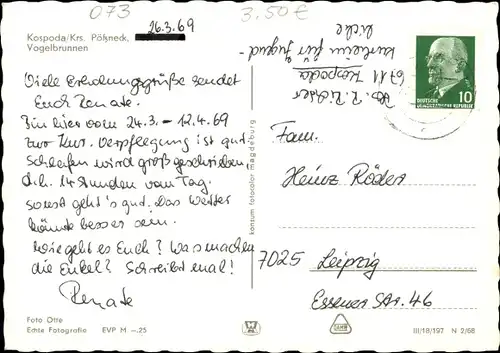 073
26.3.69
3.50 €
Kospoda/Krs. Pößneck,
Vogelbrunnen
Viele Erholungsgrüße sendet
Euch Renate.
Bin hier vom 24.3. - 12.4.69
zur Kur. Verpflegung ist gut
Schlafen wird groß geschrieben,
d.h. 14 Stunden vom Tag.
sonst geht's gut. Das Wetter
könnte besser sein.
Wie geht es Euch? Was machen
die Enkel? Schreibt mal!
Renate
6711 Kospoda
Kurheim für Jugend-
liche
DEUTSCHE
DEMOKRATISCHE REPUBLIK
10
Fam.
Heinz Röder
7025 Leipzig
Essener Str. 46
kontum fotocolor magdeburg
Foto Otte
Echte Fotografie EVP M –.25
III/18/197 N 2/68